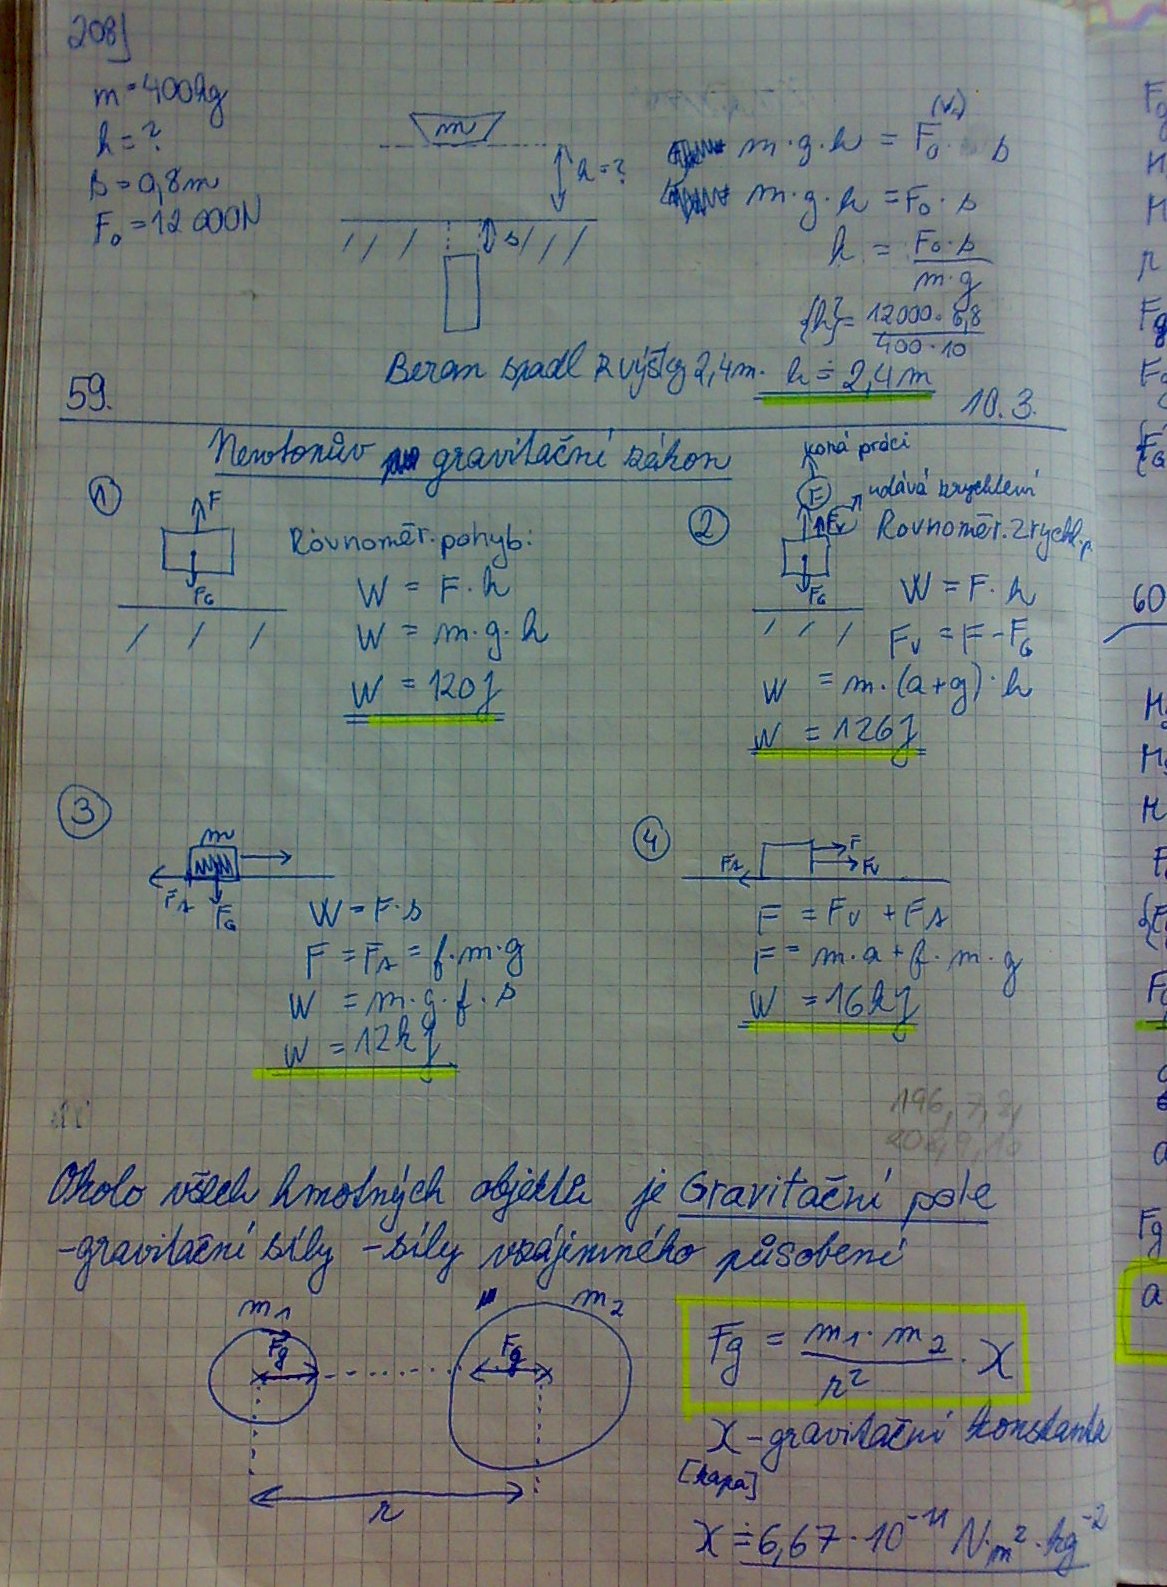 208)
m = 400kg
h = ?
s = 0,8m
F₀ = 12 000N
m
h = ?
s
(V₀)
m·g·h = F₀· s
m·g·h = F₀·s
h = F₀·s / m·g
{h} = 12000·0,8 / 400·10
Beran spadl z výšky 2,4m. h ≐ 2,4m
59.
10.3.
Newtonův gravitační zákon
①
F
F_G
Rovnoměr. pohyb:
W = F·h
W = m·g·h
W = 120J
②
koná práci
F
udává zrychlení
F_v
F_G
Rovnoměr. zrychl. p.
W = F·h
F_v = F - F_G
W = m·(a+g)·h
W = 126J
③
m
F_s
F_G
W = F·s
F = F_s = f·m·g
W = m·g·f·s
W = 12kJ
④
F_s
F
F_v
F = F_v + F_s
F = m·a + f·m·g
W = 16kJ
196, 7, 8,
202, 9, 10
Okolo všech hmotných objektů je Gravitační pole
-gravitační síly -síly vzájemného působení
m₁
m₂
F_g
F_g
r
F_g = m₁·m₂ / r² · ϰ
ϰ - gravitační konstanta
[kapa]
ϰ ≐ 6,67·10⁻¹¹ N·m²·kg⁻²
60